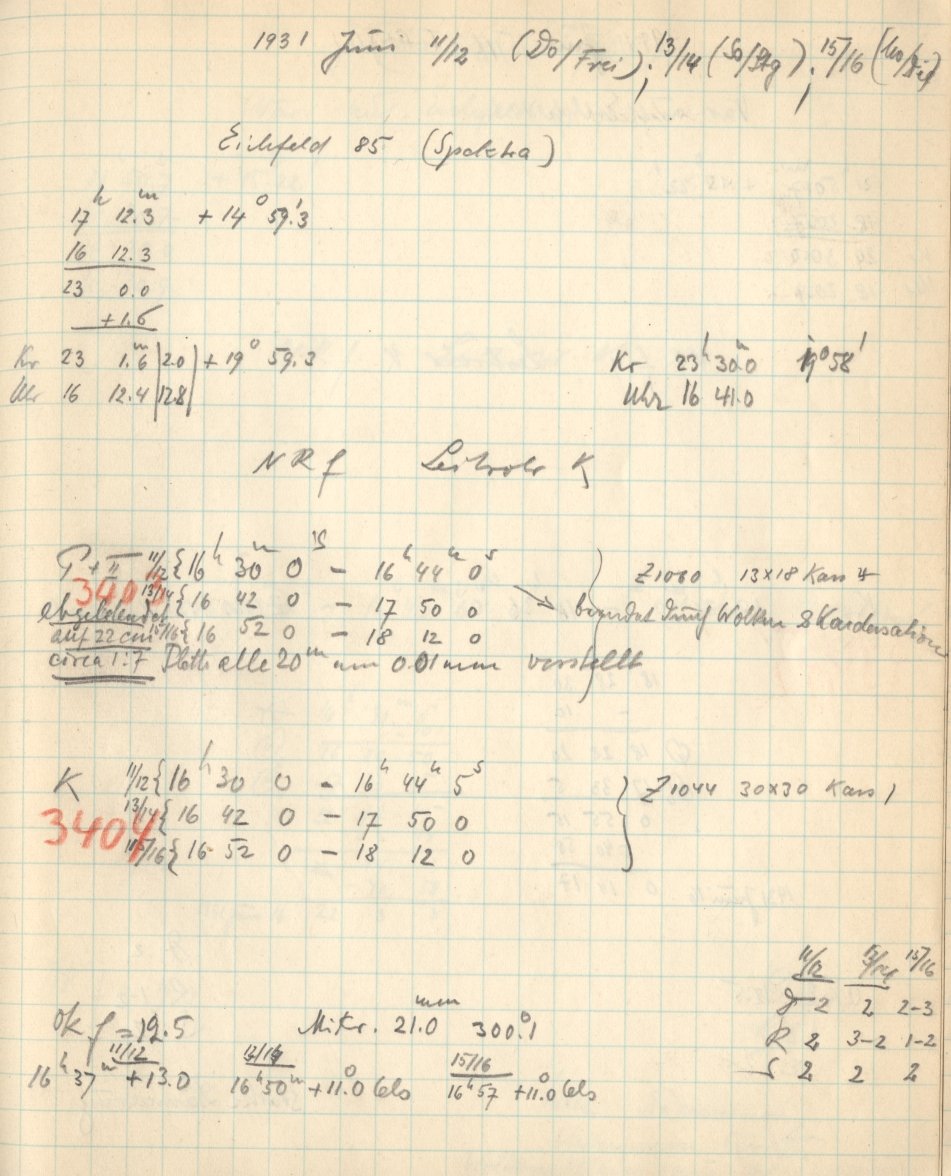 1931 Juni 11/12 (Do/Frei); 13/14 (So/Stg); 15/16 (Mo/Die)
Eichfeld 85 (Spektra)
17h 12.m3 + 14° 59.'3
16 12.3
23 0.0
+1.6
Kr 23 1.m6 |2.0| + 19° 59.3
Uhr 16 12.4 |12.8|
Kr 23h 30.m0 19° 58'
Uhr 16 41.0
NRf Leitrohr K
T+II 11/12 {16h 30m 0s - 16h 44m 0s
3403 13/14 {16 42 0 - 17 50 0
abgeblendet
auf 22 cm 15/16 {16 52 0 - 18 12 0
circa 1:7 Platte alle 20m um 0.01 mm verstellt
Z1060 13x18 Kass 4
beendet durch Wolken & Kondensation
K 11/12 {16h 30 0 - 16h 44m 5s
3404 13/14 {16 42 0 - 17 50 0
15/16 {16 52 0 - 18 12 0
Z1044 30x30 Kass 1
11/12 13/14 15/16
2 2 2-3
R 2 3-2 1-2
S 2 2 2
Ok f = 19.5 Mikr. 21.0 mm 300.°1
11/12 13/14 15/16
16h 37m +13.0 16h 50m +11.°0 Cels 16h 57 +11.°0 Cels